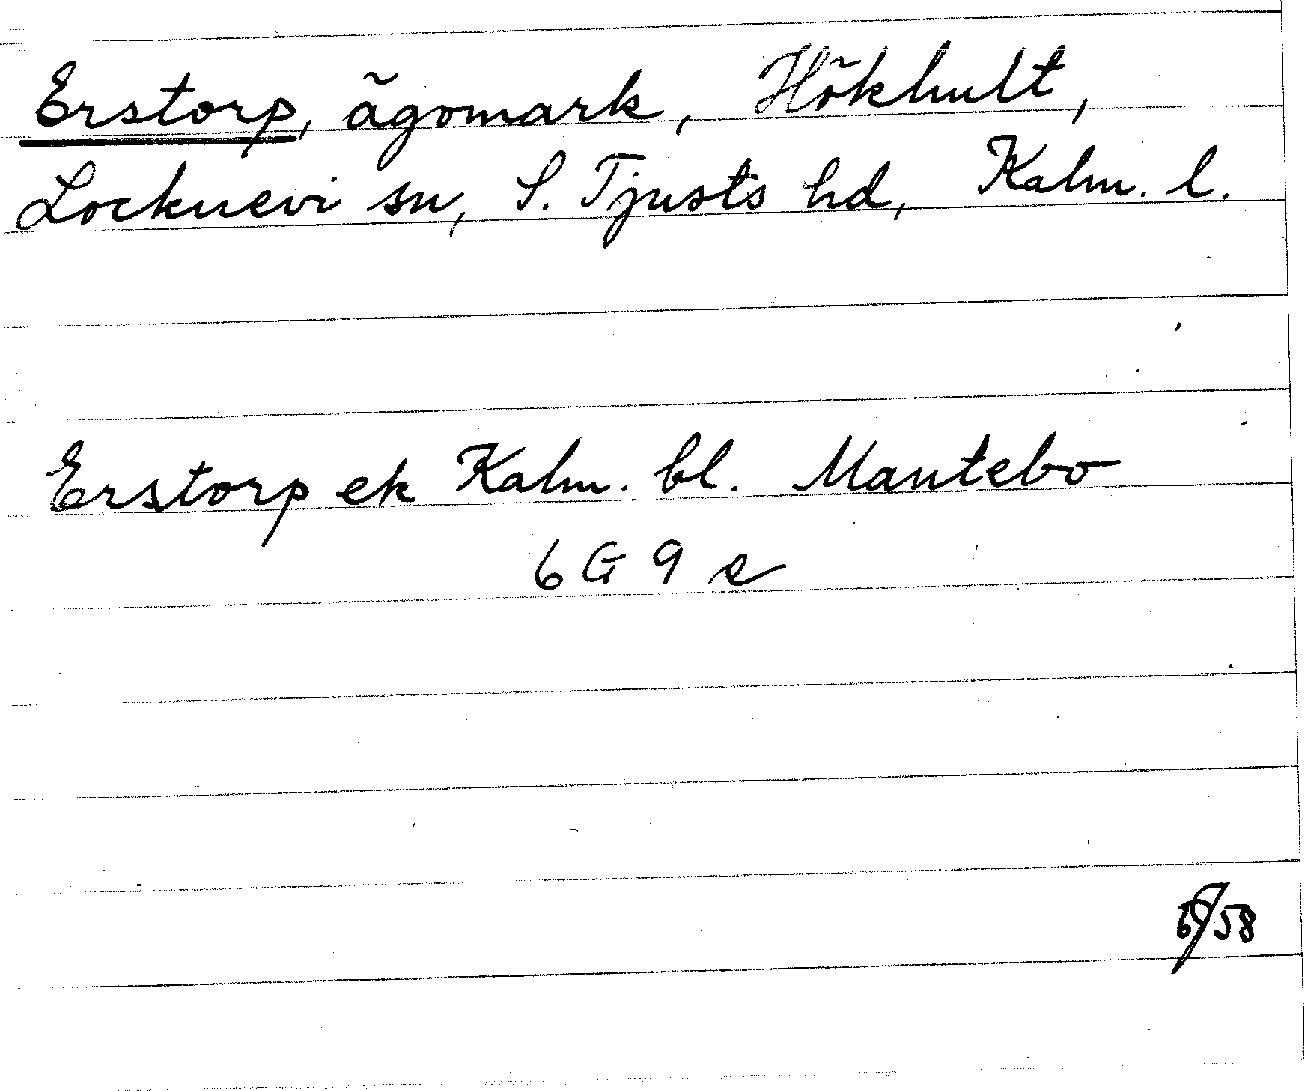 Erstorp, ägomark, Hökhult,
Locknevi sn, S. Tjusts hd, Kalm. l.
Erstorp ek Kalm. bl. Mantebo
6 G 9 e
/58